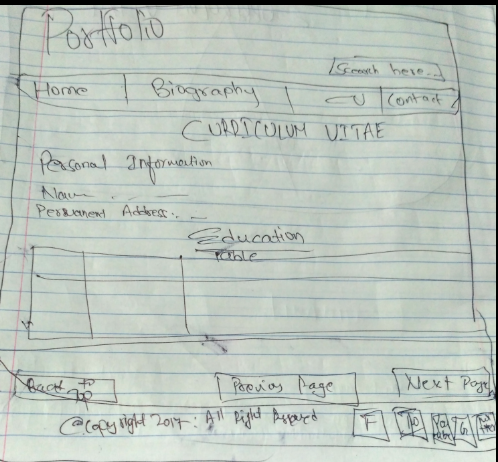 Portfolio
[Search here..]
Home | Biography | CV | Contact
CURRICULUM VITAE
Personal Information
Name
Permanent Address:
Education
Table
Back to Top
Previous Page
Next Page
@Copyright 2017: All Right Reserved
F
G